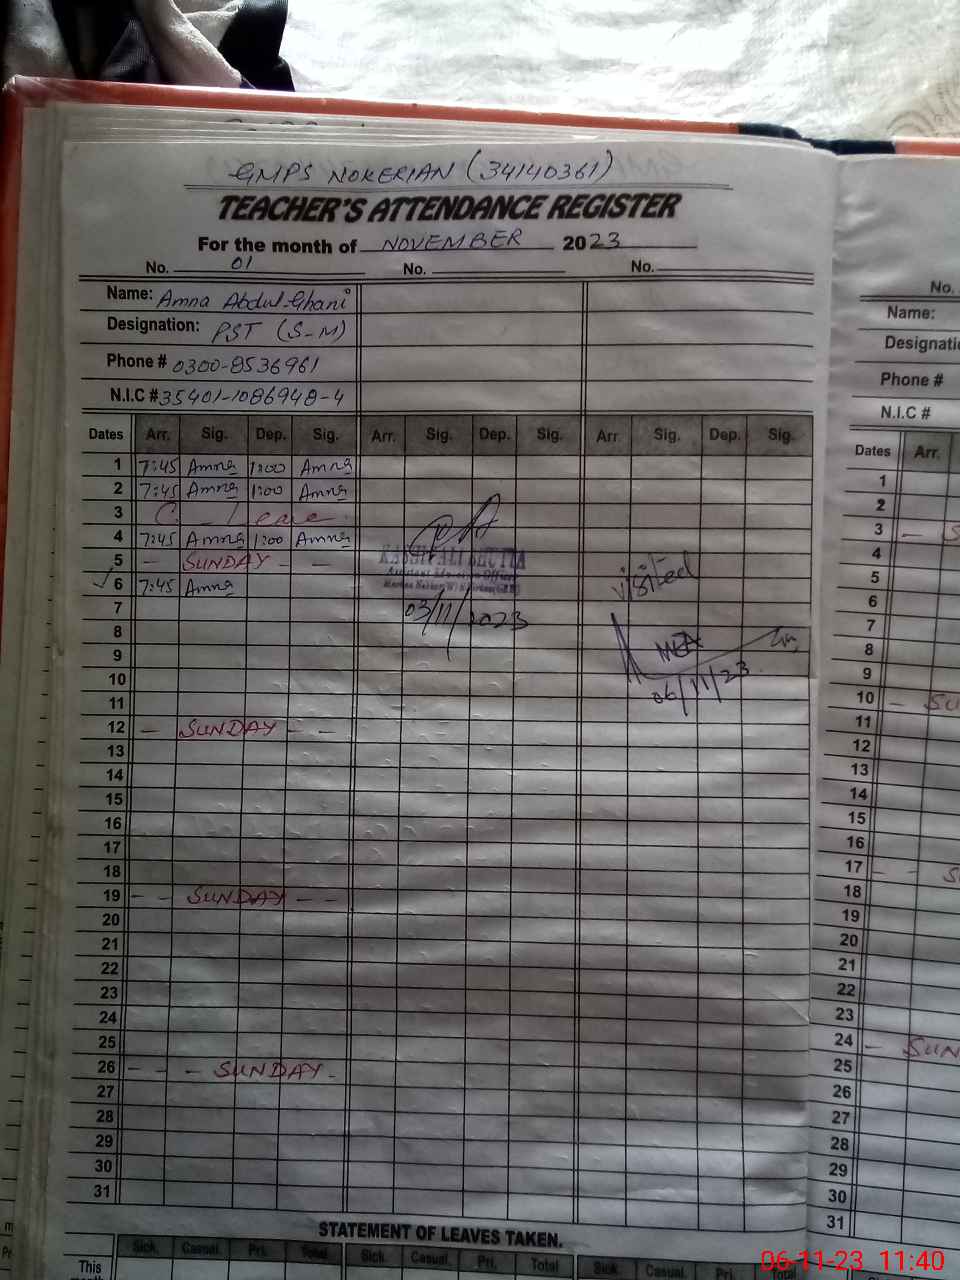 GMPS NOKERIAN (34140361)
TEACHER'S ATTENDANCE REGISTER
For the month of NOVEMBER 2023
No. 01 No. No.
Name: Amna Abdul Ghani
Designation: PST (S-M)
Phone # 0300-8536961
N.I.C # 35401-1086948-4
Dates Arr. Sig. Dep. Sig. Arr. Sig. Dep. Sig. Arr. Sig. Dep. Sig.
1 7:45 Amna 1:00 Amna
2 7:45 Amna 1:00 Amna
3 C. Leave
4 7:45 Amna 1:00 Amna
5 - SUNDAY - -
6 7:45 Amna
7
8
9
10
11
12 - SUNDAY - -
13
14
15
16
17
18
19 - - SUNDAY - -
20
21
22
23
24
25
26 - - - SUNDAY -
27
28
29
30
31
03/11/2023
visited
MEA
06/11/23
STATEMENT OF LEAVES TAKEN.
Sick. Casual. Pri. Total Sick. Casual. Pri. Total Sick. Casual. Pri. Total
This
month
No.
Name:
Designati
Phone #
N.I.C #
Dates Arr.
1
2
3 - S
4
5
6
7
8
9
10 - SU
11
12
13
14
15
16
17 - - S
18
19
20
21
22
23
24 - SUN
25
26
27
28
29
30
31
06-11-23 11:40